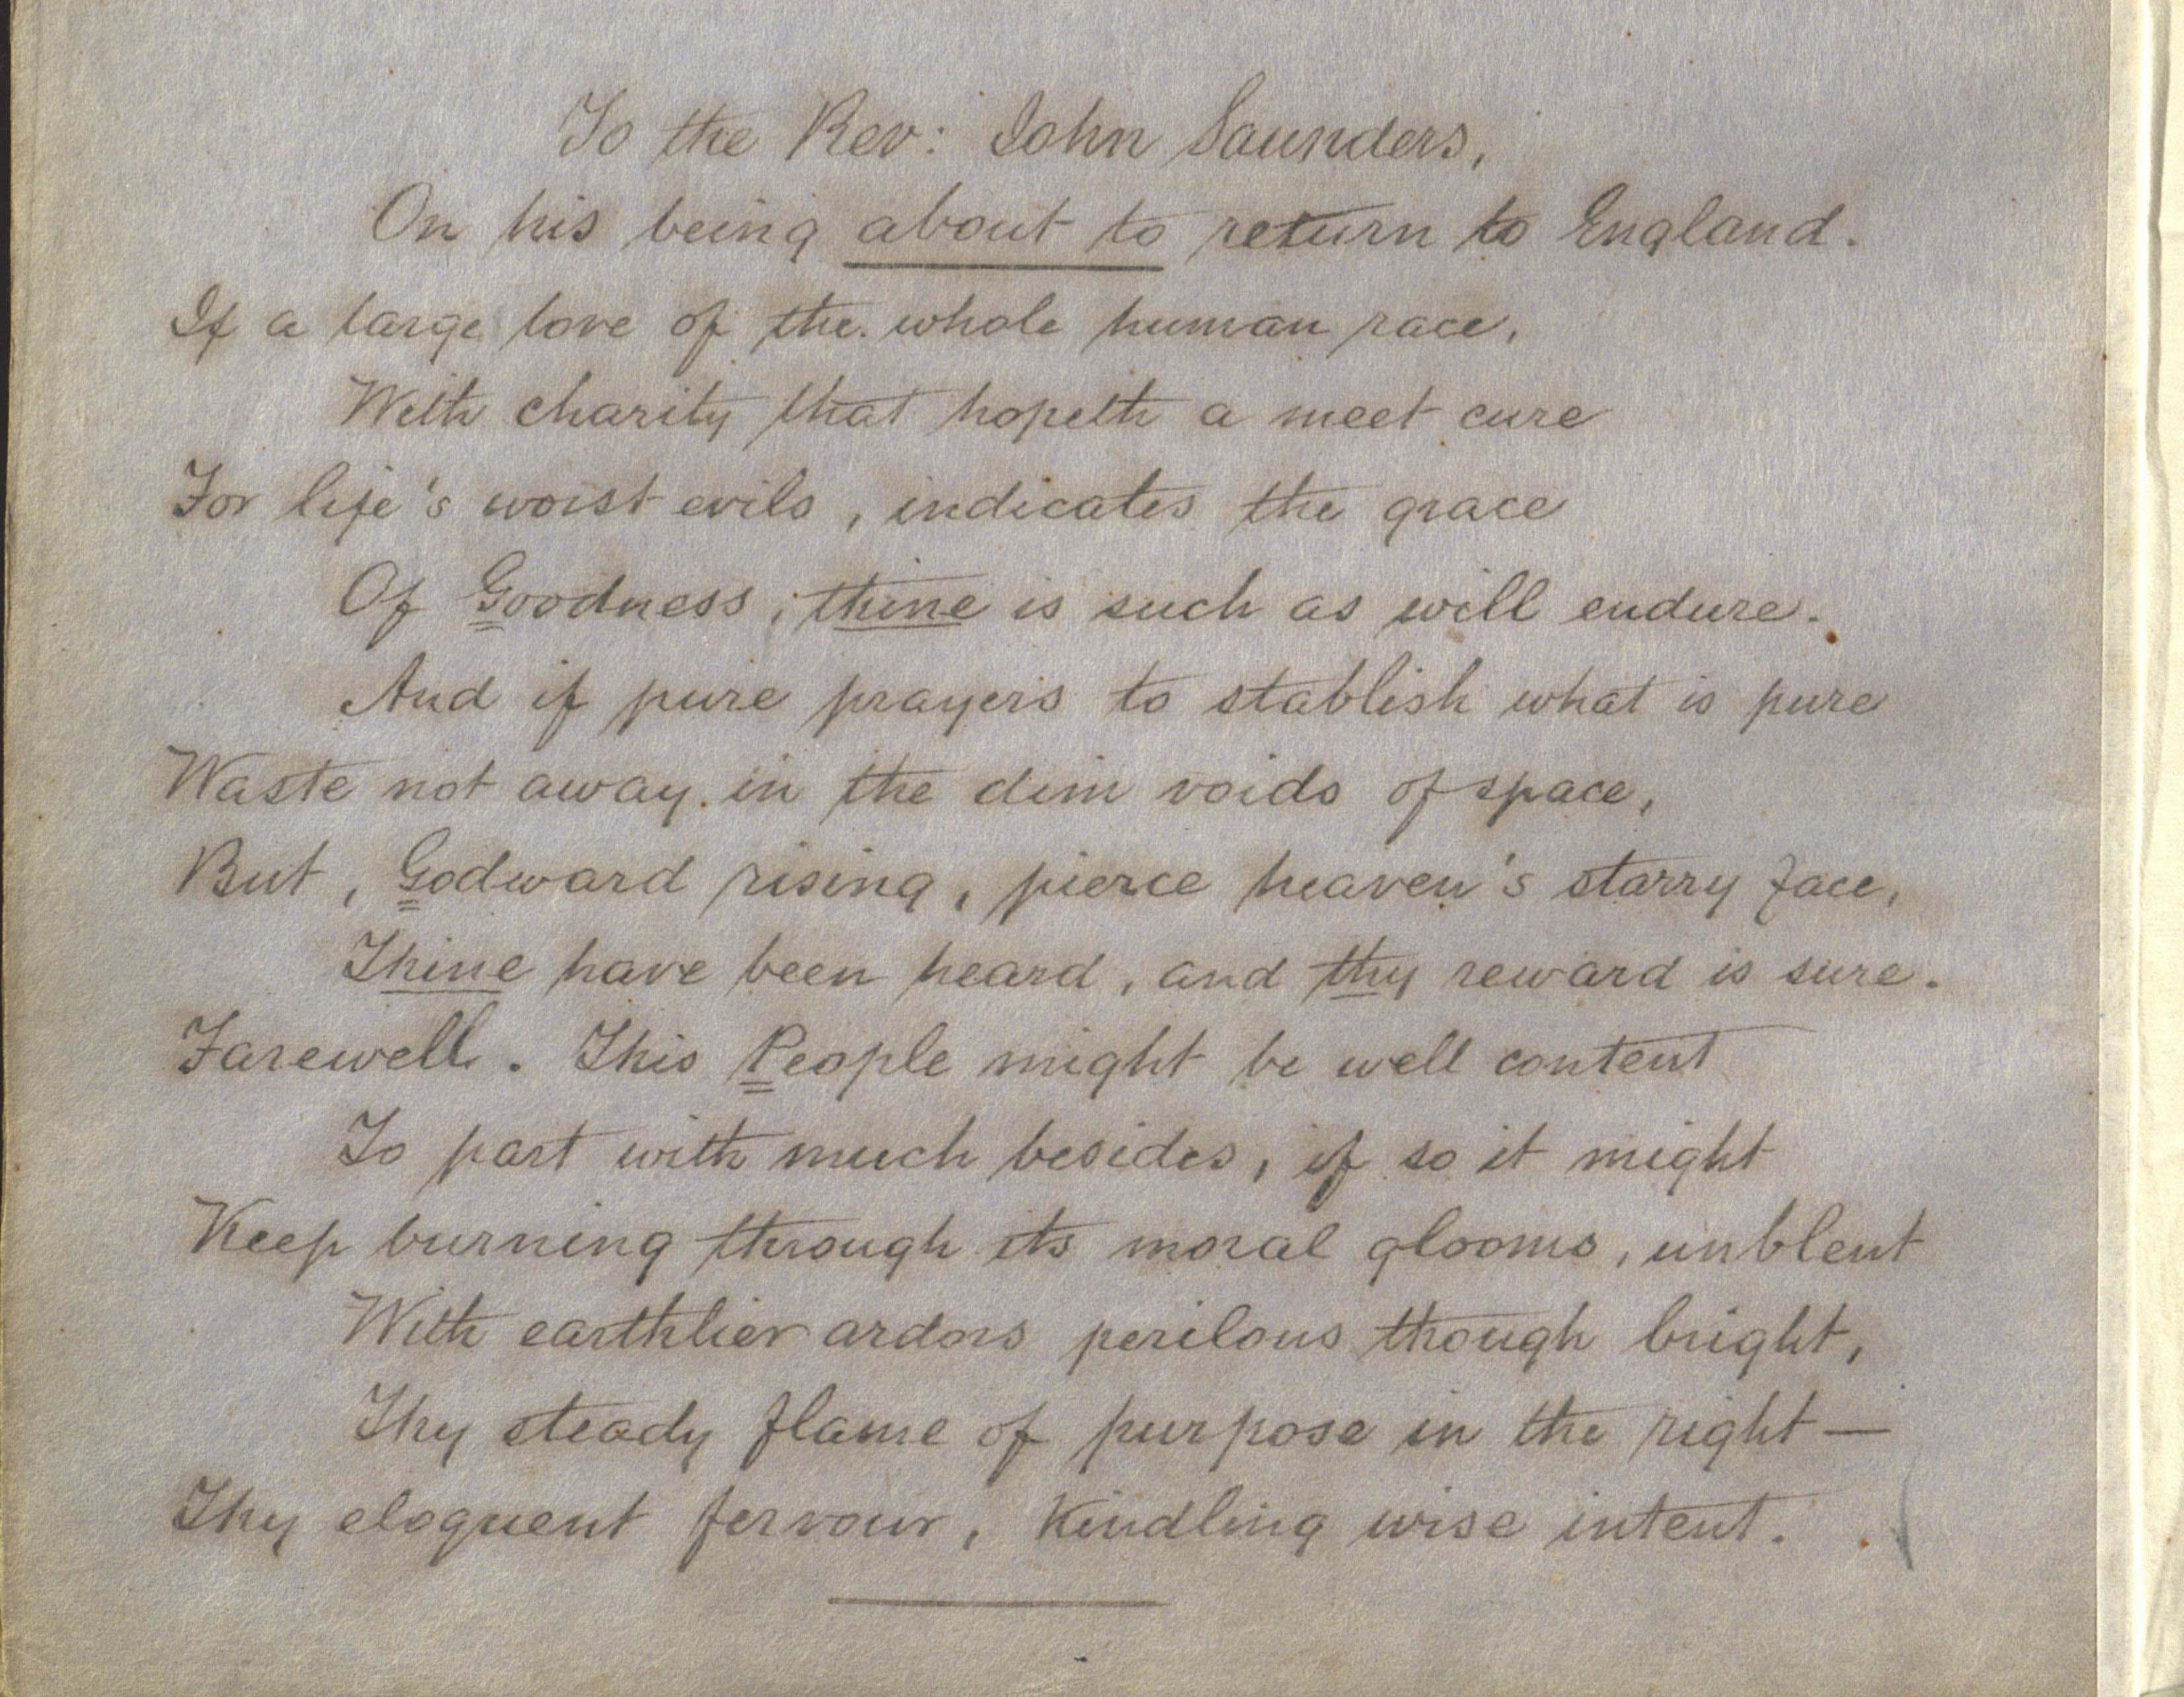 To the Rev: John Saunders,
On his being about to return to England.
If a large love of the whole human race,
With charity that hopeth a meet cure
For life's worst evils, indicates the grace
Of Goodness; thine is such as will endure.
And if pure prayers to stablish what is pure
Waste not away in the dim voids of space,
But, Godward rising, pierce heaven's starry face,
Thine have been heard, and thy reward is sure.
Farewell. This People might be well content
To part with much besides, if so it might
Keep burning through its moral glooms, unblent
With earthlier ardors perilous though bright,
Thy steady flame of purpose in the right —
Thy eloquent fervour, kindling wise intent.